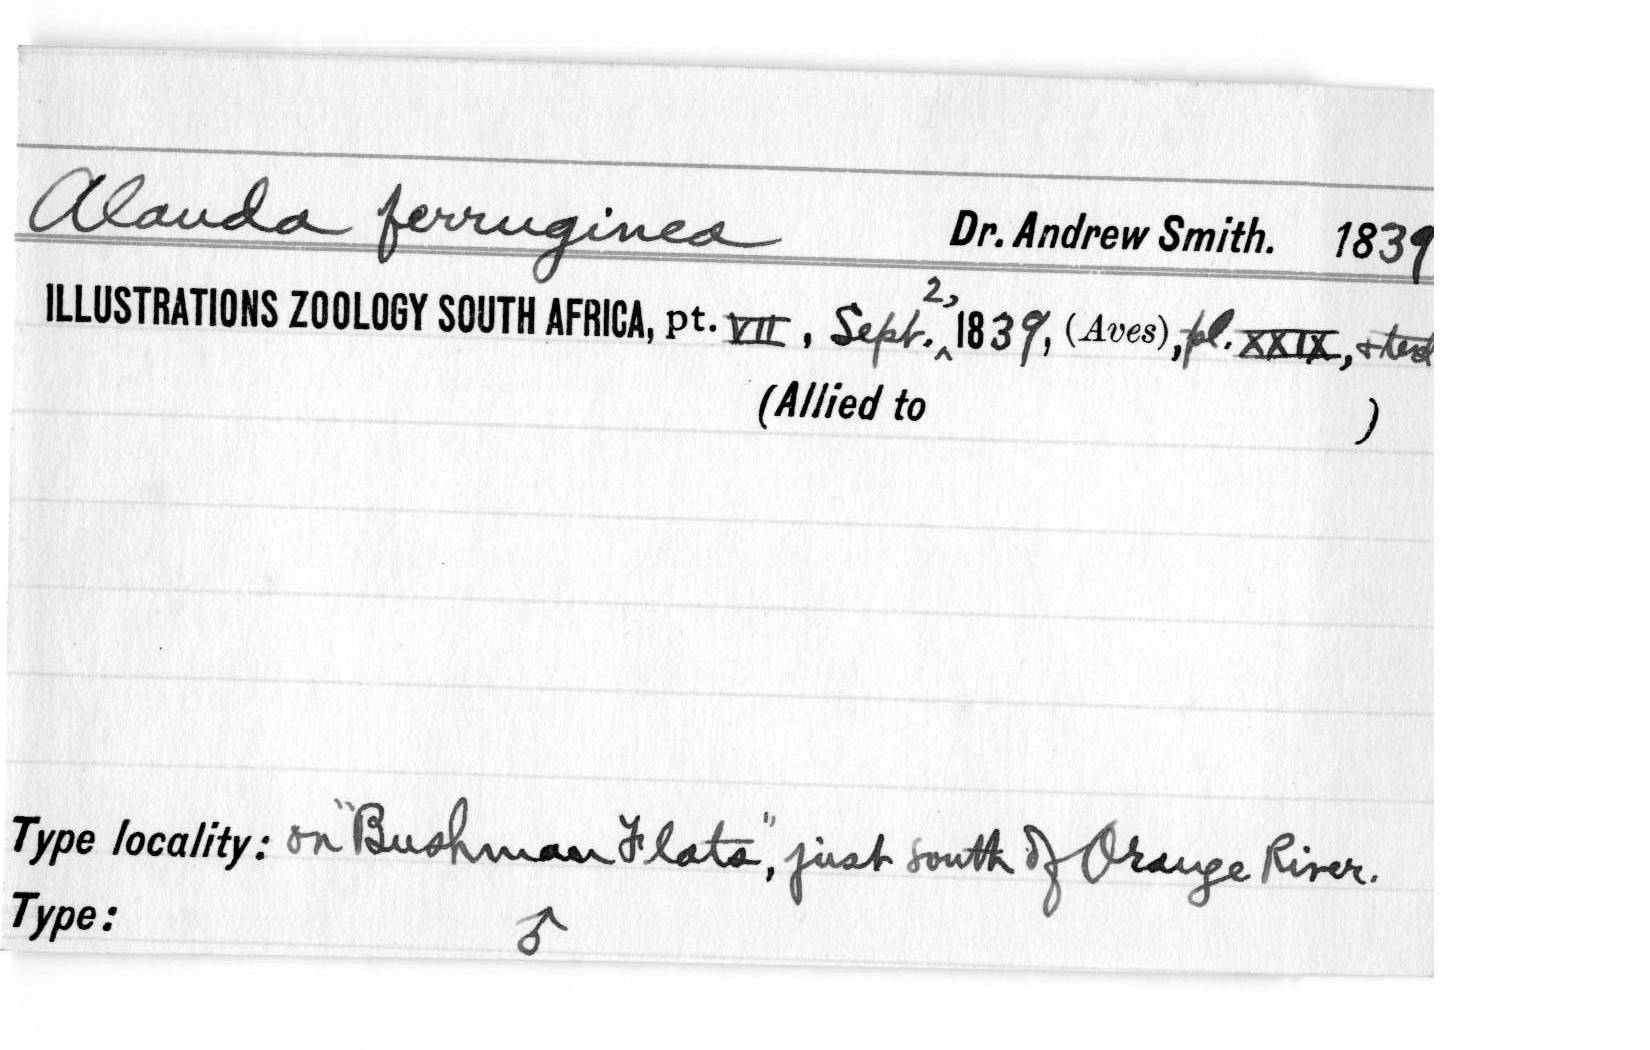 Alauda ferruginea Dr. Andrew Smith. 1839
ILLUSTRATIONS ZOOLOGY SOUTH AFRICA, pt. VII, Sept. 2, 1839, (Aves), pl. XXIX, & text
(Allied to )
Type locality: on "Bushman Flats", just south of Orange River.
Type: ♂